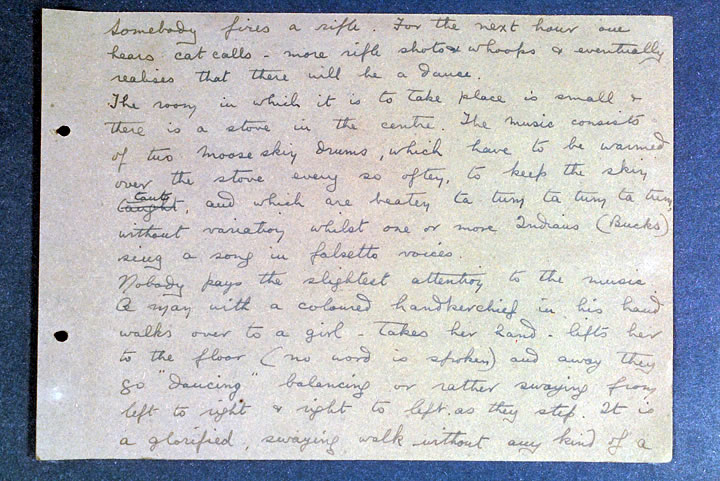 Somebody fires a rifle. For the next hour one
hears cat calls - more rifle shots & whoops & eventually
realises that there will be a dance.
The room in which it is to take place is small &
there is a stove in the centre. The music consists
of two moose skin drums, which have to be warmed
over the stove every so often, to keep the skin
taut
taught, and which are beaten ta tum ta tum ta tum
without variation whilst one or more Indians (Bucks)
sing a song in falsetto voices.
Nobody pays the slightest attention to the music
A man with a coloured handkerchief in his hand
walks over to a girl - takes her hand - lifts her
to the floor (no word is spoken) and away they
go "dancing" balancing or rather swaying from
left to right & right to left as they step. It is
a glorified, swaying walk without any kind of a